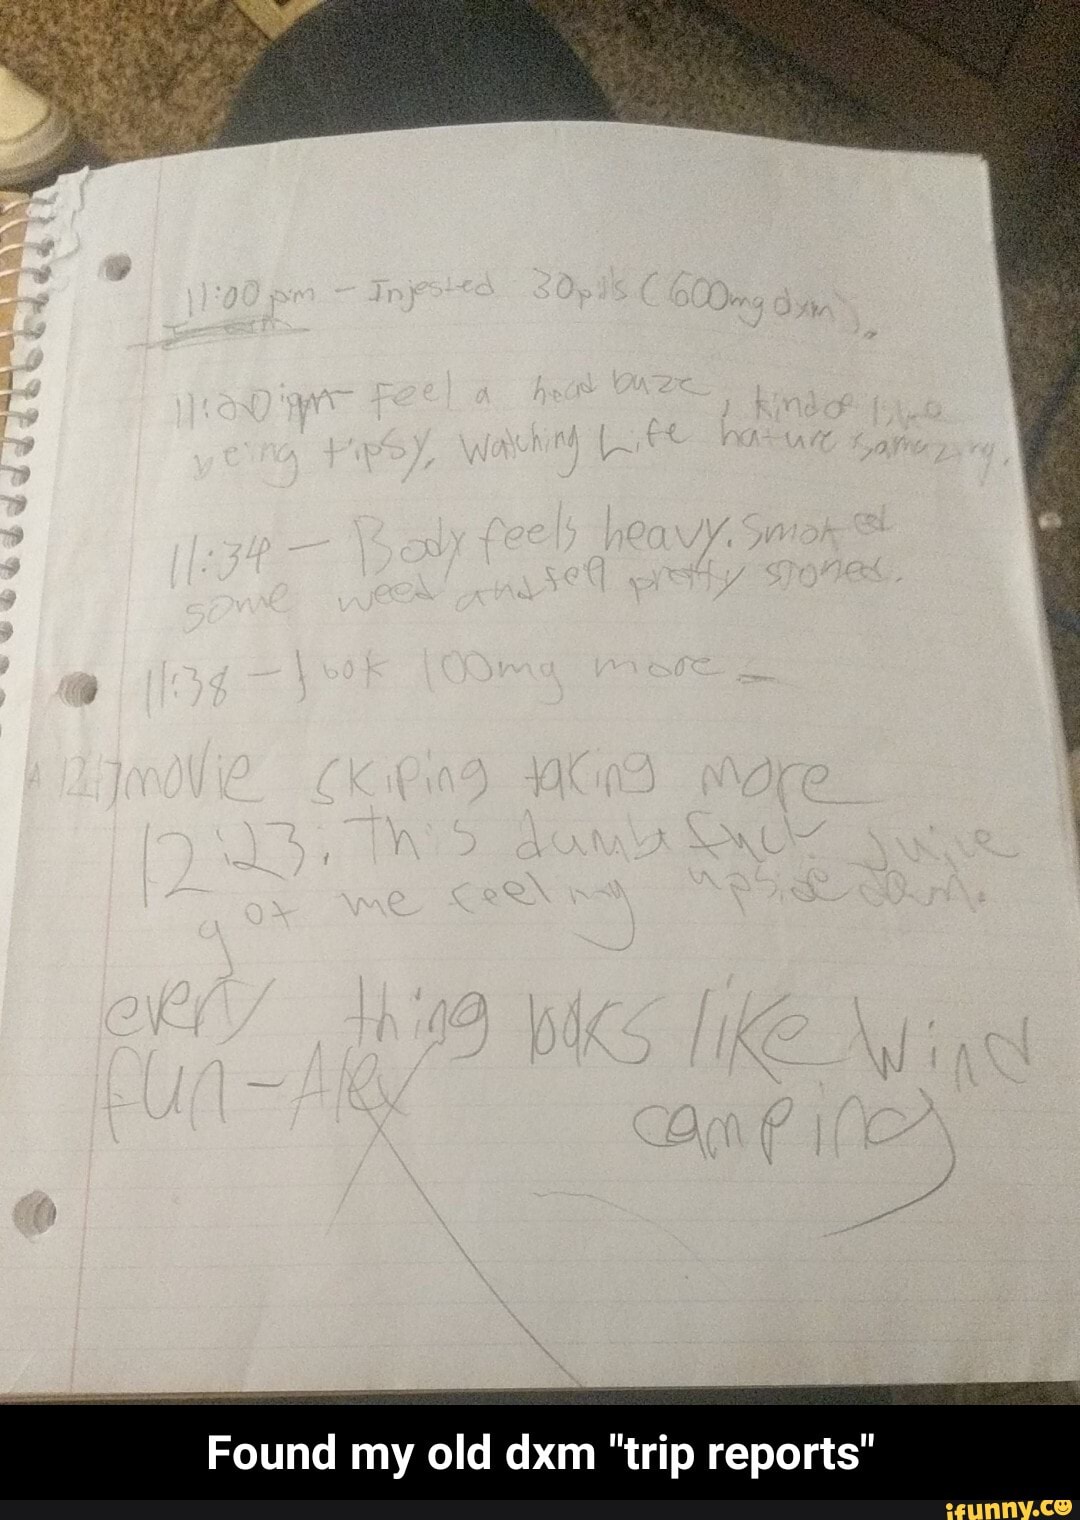 11:00 pm - Injested 30 pills (600mg dxm).
11:20 pm - Feel a head buzz, kind of like
being tipsy, Watching Life nature is amazing.
11:34 - Body feels heavy. Smoked
some weed and fell pretty stoned.
11:38 - took 100mg more -
movie skiping taking more
12:23: This dumb fuck juice
got me feeling upside down.
every thing looks like wind
fun-Alex camping
Found my old dxm "trip reports"
ifunny.co